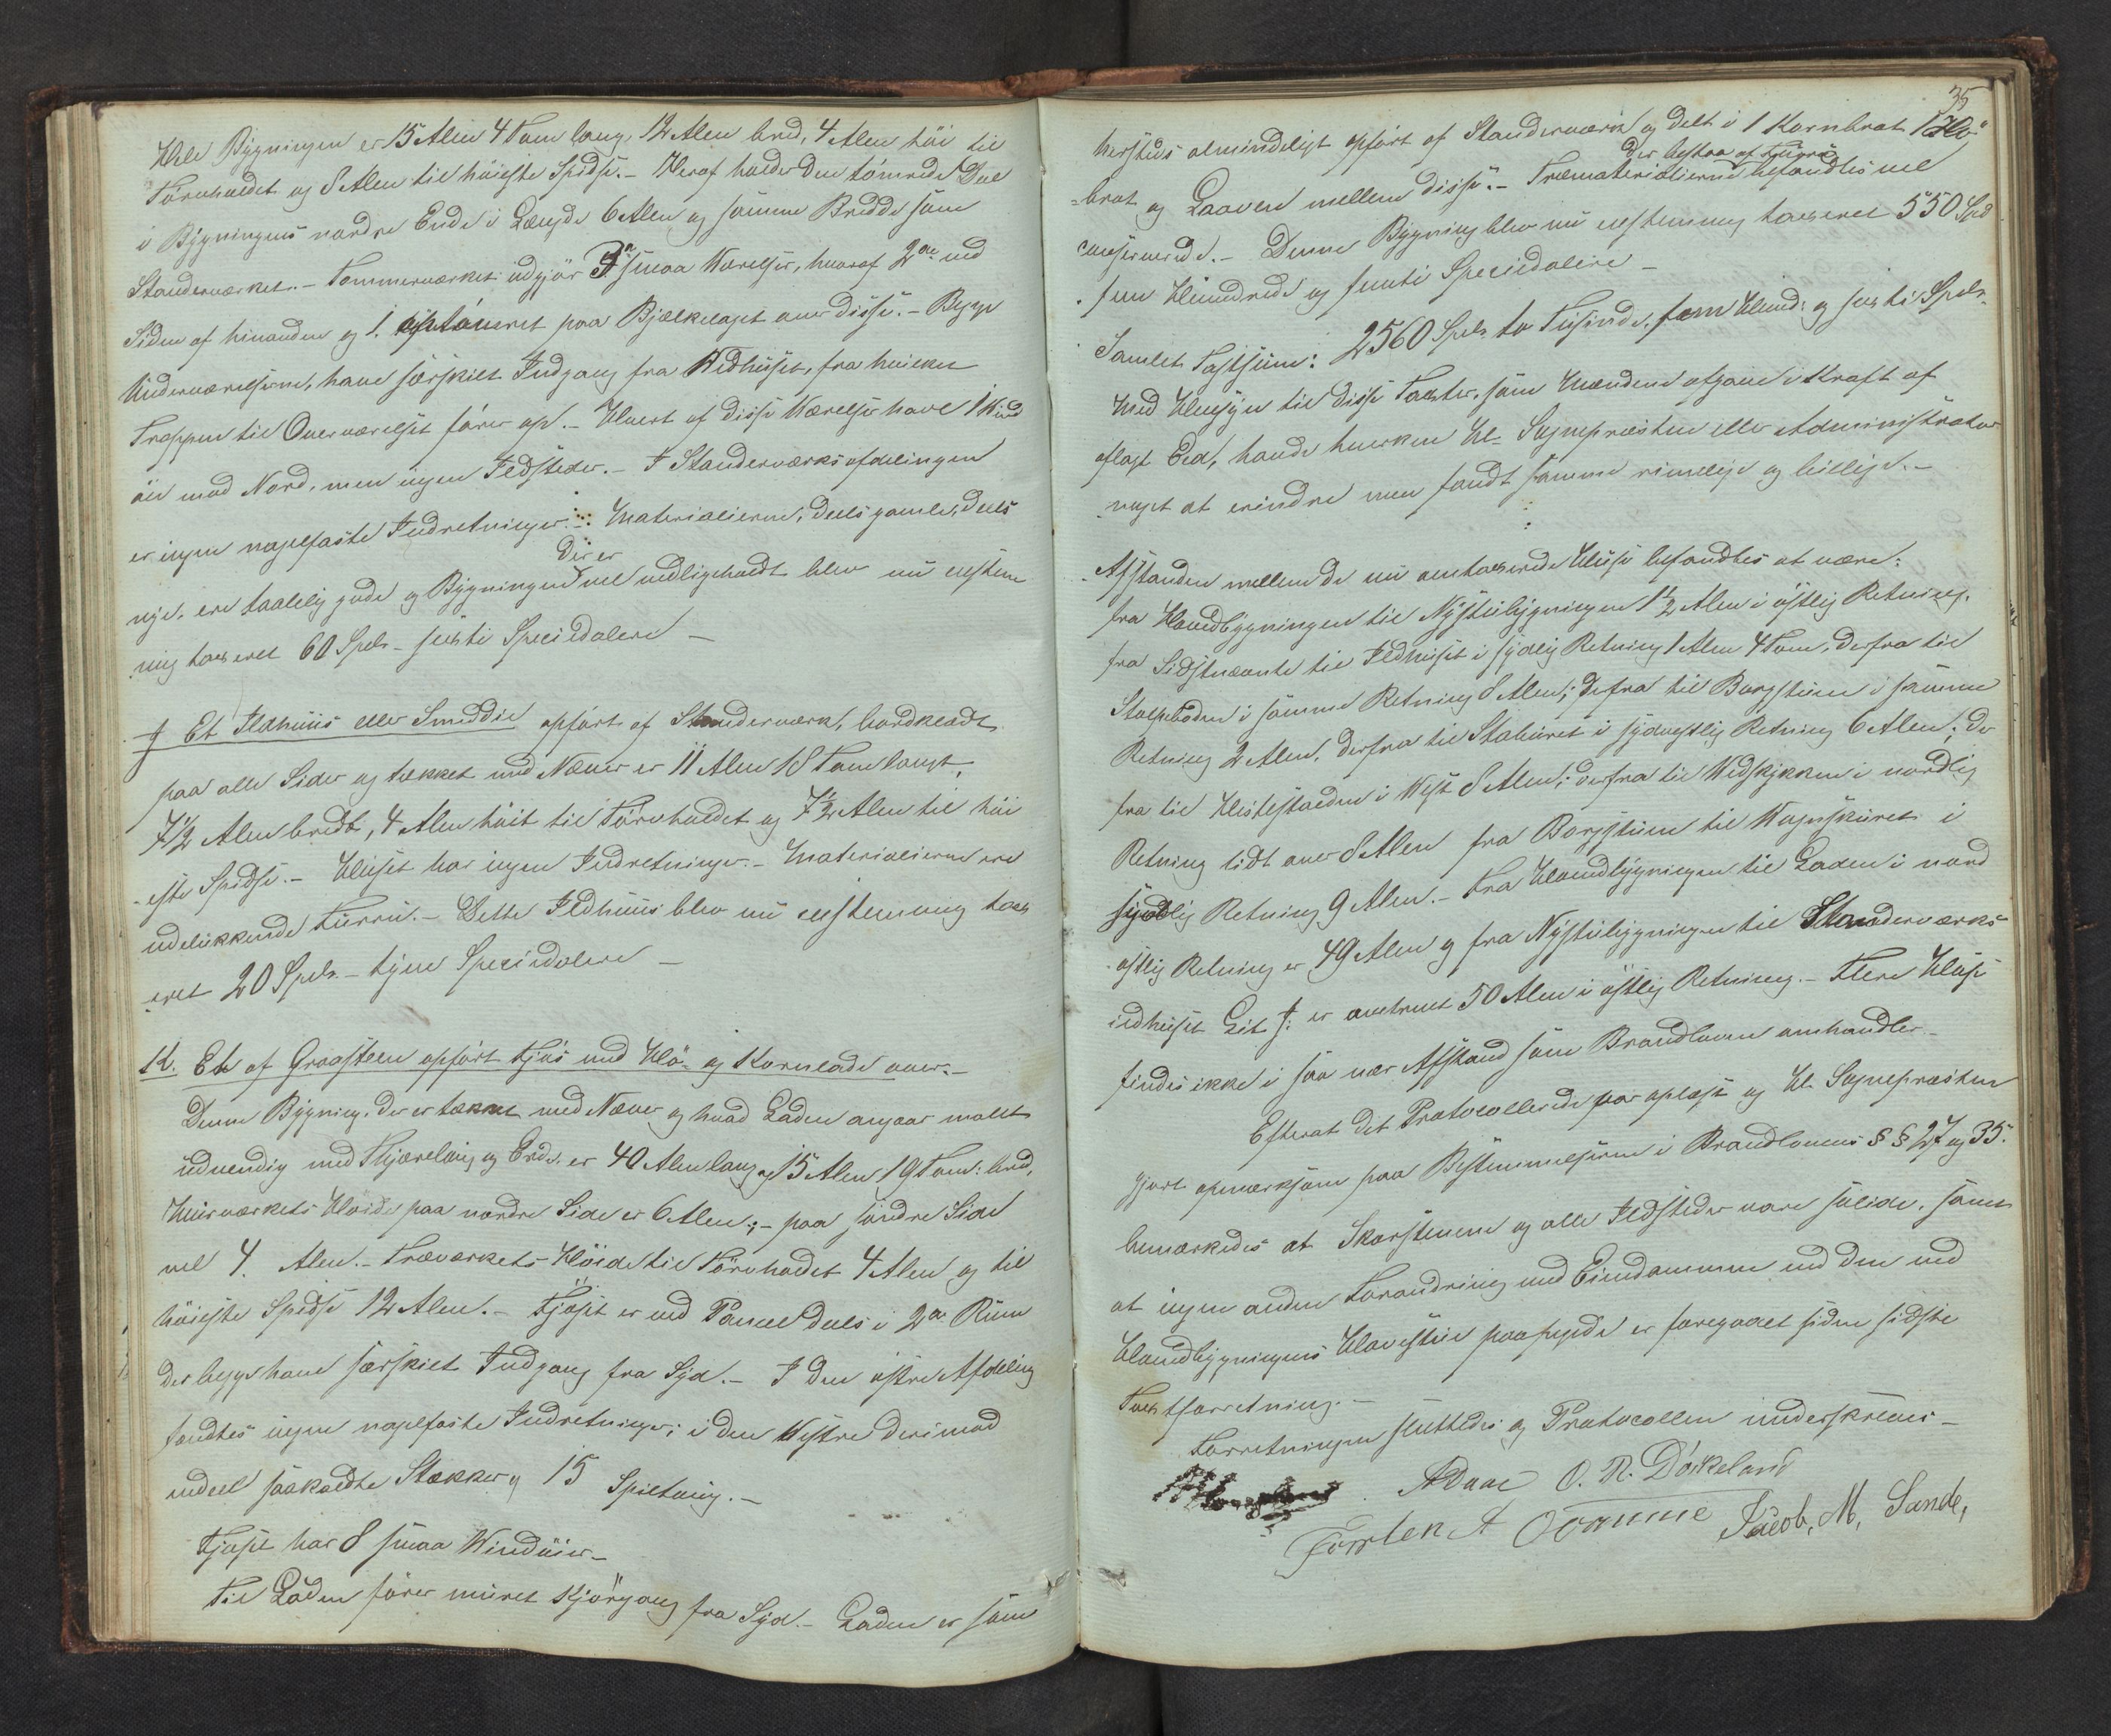 Hele Bygningen er 15 Alen 4 Tom lang, 12 Alen bred, 4 Alen höi til
Törvholdet og 8 Alen til höieste Spidse. – Heraf holder den tömrede Deel
i Bygningens nordre Ende i Længde 6 Alen og samme Bredde som
Standerværket. – Tømmerværket udgjör 3 smaa Værelser, hvoraf 2de ved
Siden af hinanden og 1. paa Bjælkelaget over disse. – Begge
Underværelserne, have særskilt Indgang fra Vedhuset, fra hvilket
Trappen til Overværelset förer op. – Hvert af disse Værelser have 1 Vind
öie mod Nord, men ingen Ildsteder. – I Standerværksafdelingen
er ingen nagelfaste Indretninger. – Materialierne, deels gamle, deels
nye, ere taalelig gode og Bygningen der er vel vedligeholdt blev nu eenstem
mig taxeret 60 Spdlr – sexti Speciedalere –
J Et Ildhuus eller Smeddie opfört af Standerværk, bordklædt
paa alle Sider og tækket med Næver er 11 Alen 18 Tom langt,
7 1/2 Alen bredt, 4 Alen höit til Törvholdet og 7 1/2 Alen til höi
-este Spidse. – Huset har ingen Indretninger. – Materialierne ere
udelukkende Furru. – Dette Ildhuus blev nu eenstemmig tax
eret 20 Spdlr. – tyve Speciedalere –
K. Et af Graasteen opfört Fjös med Hö- og Kornlade over. –
Denne Bygning, der er tækket med Næver og hvad Laden angaar malet
udvendig med Skjæreling og Erde, er 40 Alen lang og 15 Alen 19 Tom: bred,
Muurværkets Höide paa nordre Side er 6 Alen; – paa söndre Side
vel 4. Alen. – Træværkets Höide til Törvholdet 4 Alen og til
höieste Spidse 12 Alen. – Fjöset er ved Panel deelt i 2de Rum
der begge have særskilt Indgang fra Syd. – I den östre Afdeling
fandtes ingen nagelfaste Indretninger; i den Vestre derimod
endeel saakaldte Stækker og 15 Spiltaug. –
Fjöset har 8 smaa Vinduier –
Til Laden förer muret Kjörgang fra Syd. – Laden er som
35
hersteds almindeligt opfört af Standerværk og delt i 1 Kornbrot, 1 Hö-
-brot og Laaven mellem disse. – Træmaterialierne der bestaa af Furru befandtes vel
conserverede. – Denne Bygning blev nu eenstemmig taxeret 550 Spd
fem Hundrede og femti Speciedalere –
Samlet Taxtsum: 2560 Spdlr. to Tusinde, fem Hund: og sexti Spdlr.
Med Hensyn til disse Taxter, som Mændene afgave i Kraft af
aflagt Eed, havde hverken Hr. Sognepræsten eller Administrator
noget at erindre men fandt samme rimelige og billige. –
Afstanden mellem de nu omtaxerede Huse befandtes at være:
fra Hovedbygningen til Nystubygningen 1 1/2 Alen i östlig Retning.
fra Sidstnævnte til Ildhuset i sydlig Retning 1 Alen 4 Tom, derfra til
Stolpeboden i samme Retning 8 Alen; derfra til Borgstuen i samme
Retning 2 Alen, derfra til Staburet i sydvestlig Retning 6 Alen; der
fra til Hestestalden i Vest 8 Alen; derfra til Vedskykken i nordlig
Retning lidt over 8 Alen fra Borgstuen til Vognskuret i
sydlig Retning 9 Alen. – Fra Hovedbygningen til Laden i nord
östlig Retning er 49 Alen og fra Nystubygningen til Standerværks-
ildhuset Lit J: er omtrent 50 Alen i östlig Retning. – Flere Huse
findes ikke i saa nær Afstand som Brandloven omhandler –
Efterat det Protocollerede var oplæst og Hr. Sognepræsten
gjort opmærksom paa Bestemmelserne i Brandlovens §§ 27 og 35.
bemærkedes at Skorstenene og alle Ildsteder vare solide, samt
at ingen anden Forandring med Eiendommene end den ved
Hovedbygningens Havestue paapegede er foregaaet siden sidste
Taxtforretning. –
Forretningen sluttedes og Protocollen underskreves –
A Daae O. N. Dökeland
Torsten A Jacob, M, Sande,